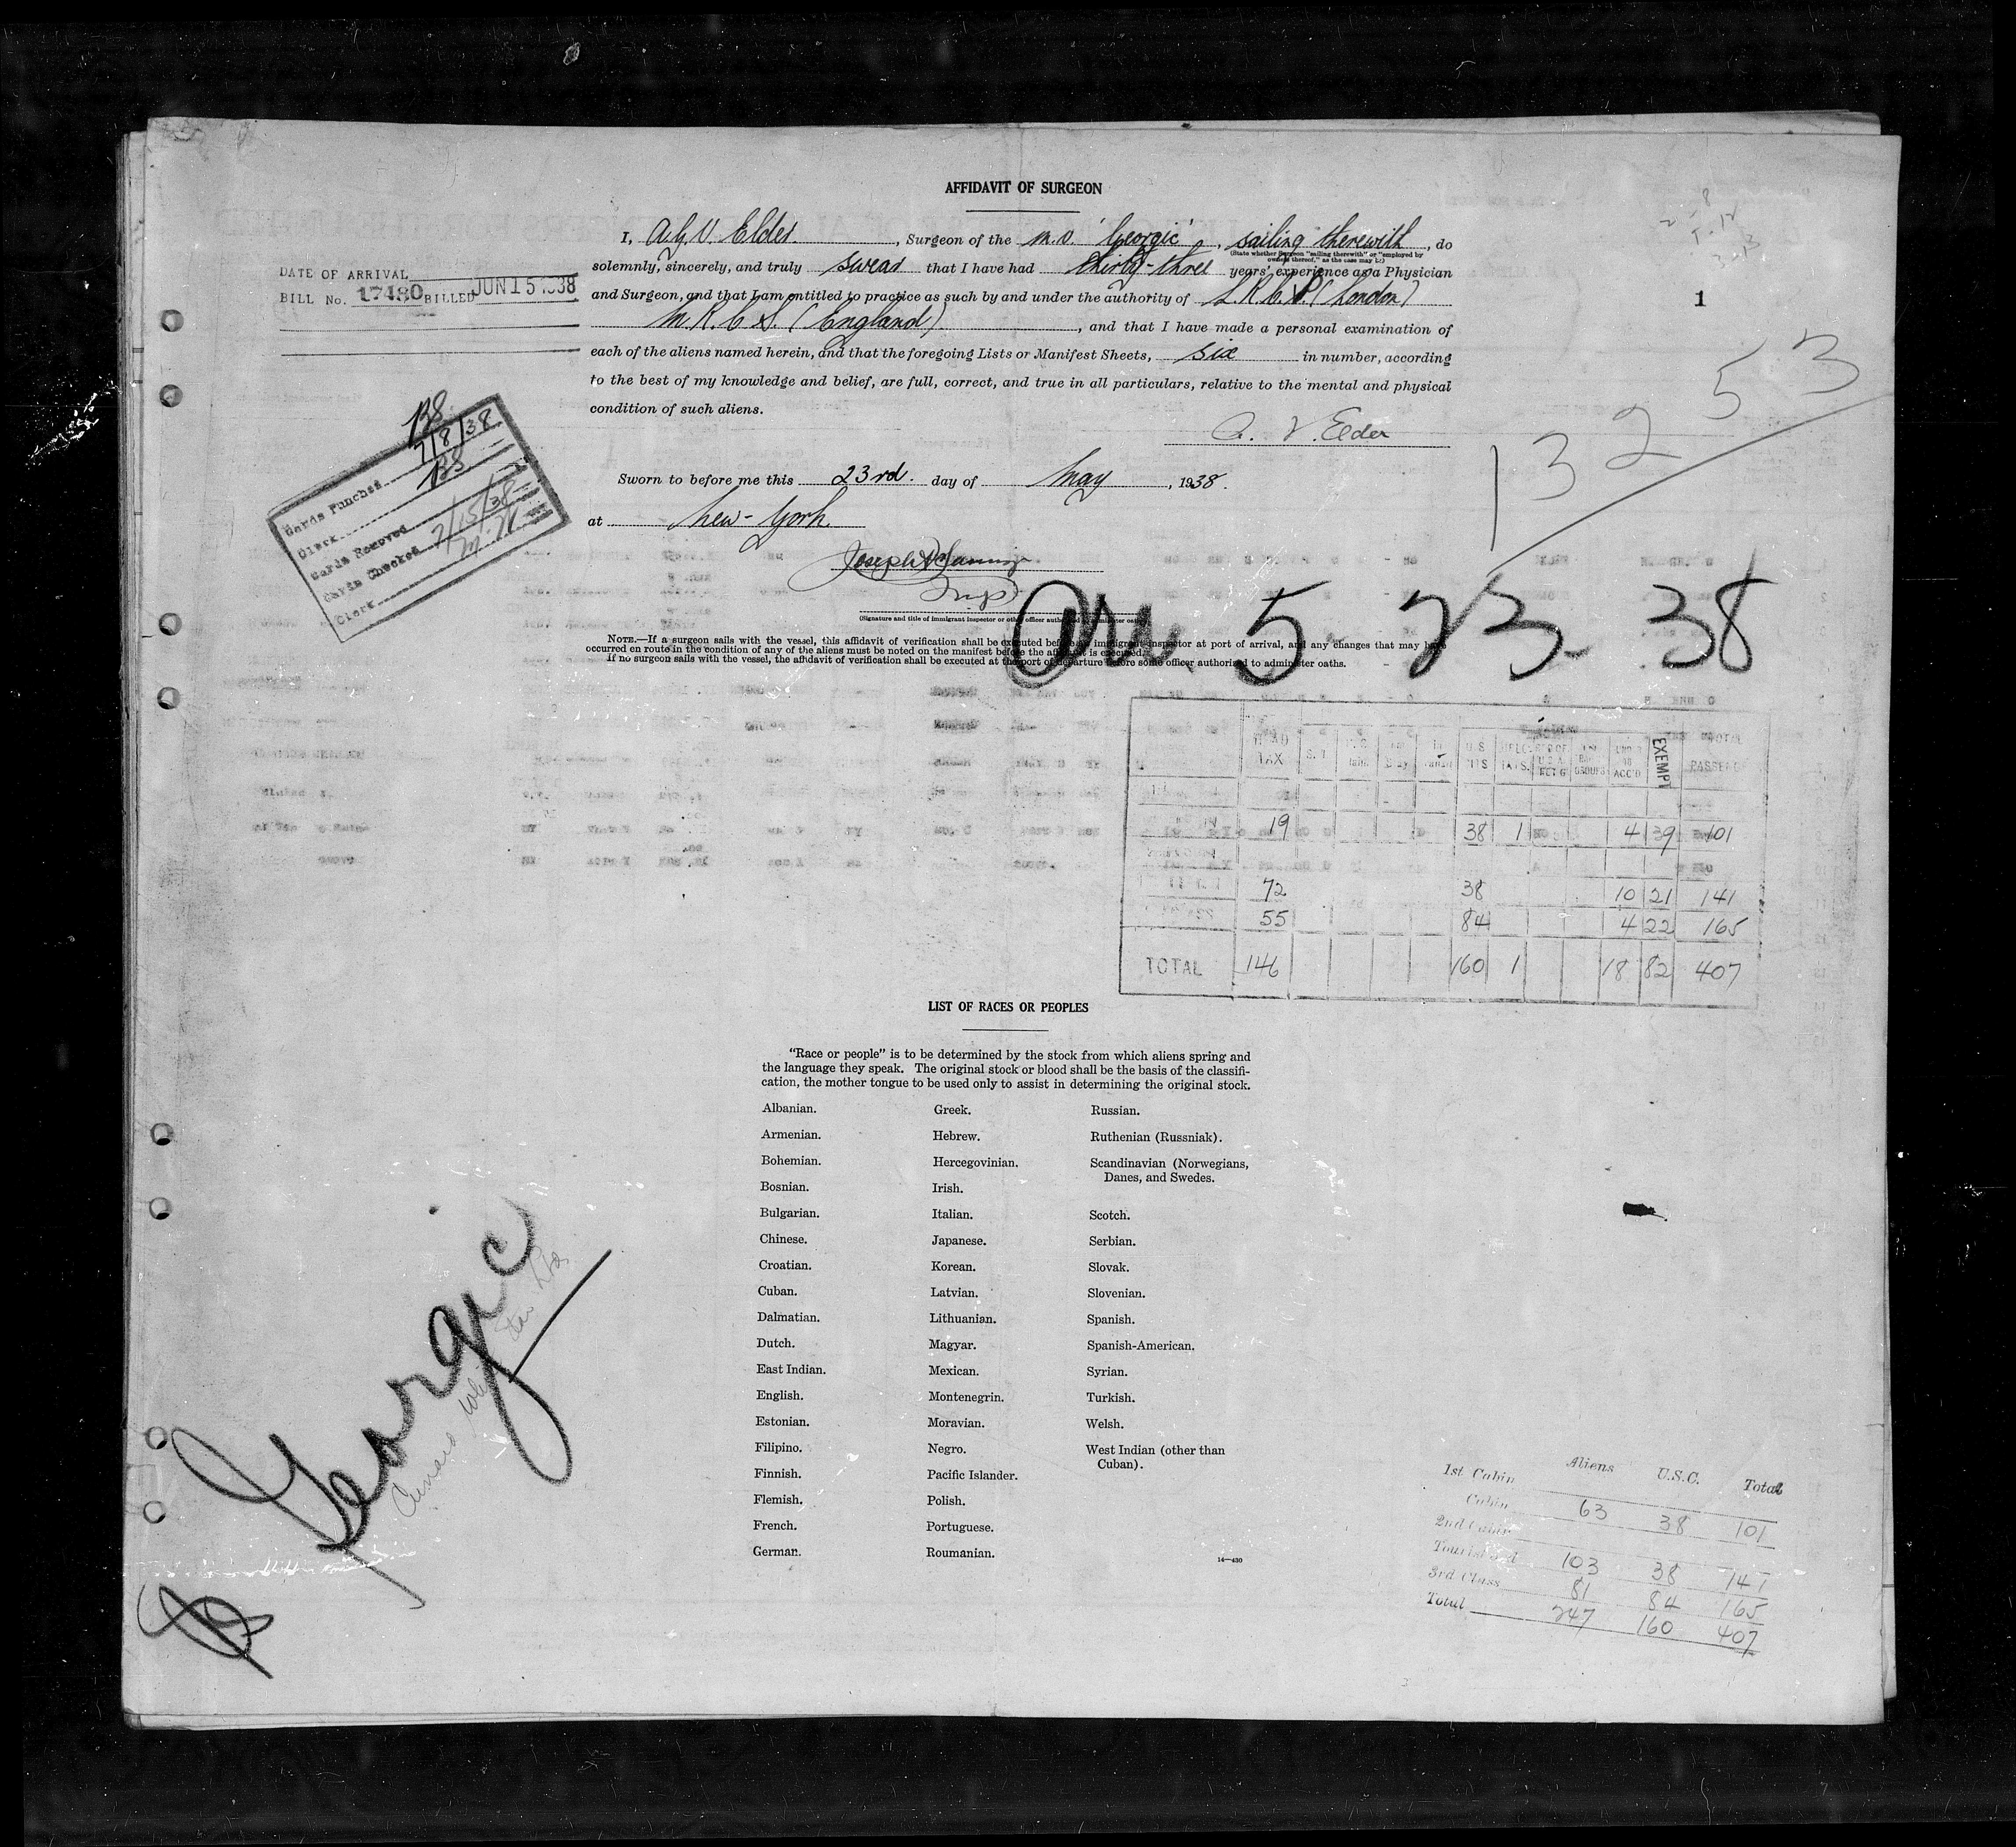 AFFIDAVIT OF SURGEON
I, A.G.V. Elder, Surgeon of the m.v. 'Georgic', sailing therewith, do
(State whether Surgeon "sailing therewith" or "employed by
owners thereof," as the case may be)
solemnly, sincerely, and truly swear that I have had thirty-three years' experience as a Physician
and Surgeon, and that I am entitled to practice as such by and under the authority of L.R.C.P. (London)
M.R.C.S. (England), and that I have made a personal examination of
each of the aliens named herein, and that the foregoing Lists or Manifest Sheets, six in number, according
to the best of my knowledge and belief, are full, correct, and true in all particulars, relative to the mental and physical
condition of such aliens.
A. V. Elder
Sworn to before me this 23rd. day of May, 1938.
at New-York.
Insp
(Signature and title of immigrant inspector or other officer authorized to administer oaths)
NOTE.—If a surgeon sails with the vessel, this affidavit of verification shall be executed before an immigrant inspector at port of arrival, and any changes that may have
occurred en route in the condition of any of the aliens must be noted on the manifest before the affidavit is executed.
If no surgeon sails with the vessel, the affidavit of verification shall be executed at the port of departure before some officer authorized to administer oaths.
DATE OF ARRIVAL
BILL No. 17480 BILLED JUN 15 1938
1
13253
Cards Punched 7/8/38
Clerk BS
Cards Removed
Cards Checked 7/15/38
Clerk
Arr. 5-23-38
HEAD TAX S.T. U.S. CITS EXEMPT TOTAL PASSEN
19 38 1 4 39 101
72 38 10 21 141
55 84 4 22 165
TOTAL 146 160 1 18 82 407
LIST OF RACES OR PEOPLES
"Race or people" is to be determined by the stock from which aliens spring and
the language they speak. The original stock or blood shall be the basis of the classifi-
cation, the mother tongue to be used only to assist in determining the original stock.
Albanian.
Armenian.
Bohemian.
Bosnian.
Bulgarian.
Chinese.
Croatian.
Cuban.
Dalmatian.
Dutch.
East Indian.
English.
Estonian.
Filipino.
Finnish.
Flemish.
French.
German.
Greek.
Hebrew.
Hercegovinian.
Irish.
Italian.
Japanese.
Korean.
Latvian.
Lithuanian.
Magyar.
Mexican.
Montenegrin.
Moravian.
Negro.
Pacific Islander.
Polish.
Portuguese.
Roumanian.
Russian.
Ruthenian (Russniak).
Scandinavian (Norwegians,
Danes, and Swedes.
Scotch.
Serbian.
Slovak.
Slovenian.
Spanish.
Spanish-American.
Syrian.
Turkish.
Welsh.
West Indian (other than
Cuban).
14—430
Georgic
Cunard White Star Ltd
Aliens U.S.C. Total
1st Cabin
Cabin 63 38 101
2nd Cabin
Tourist 3rd 103 38 141
3rd Class 81 84 165
Total 247 160 407